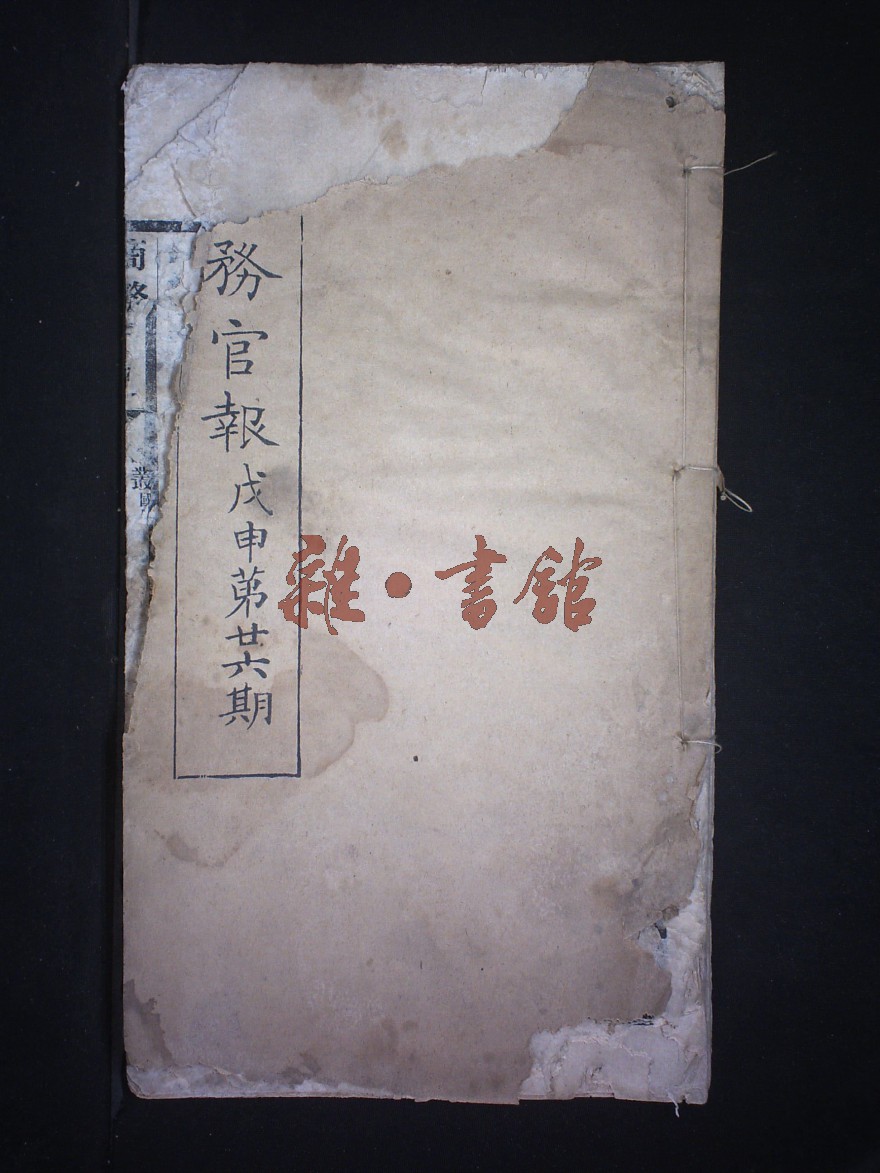 務官報戊申第廿六期
商務
叢
雜·書館